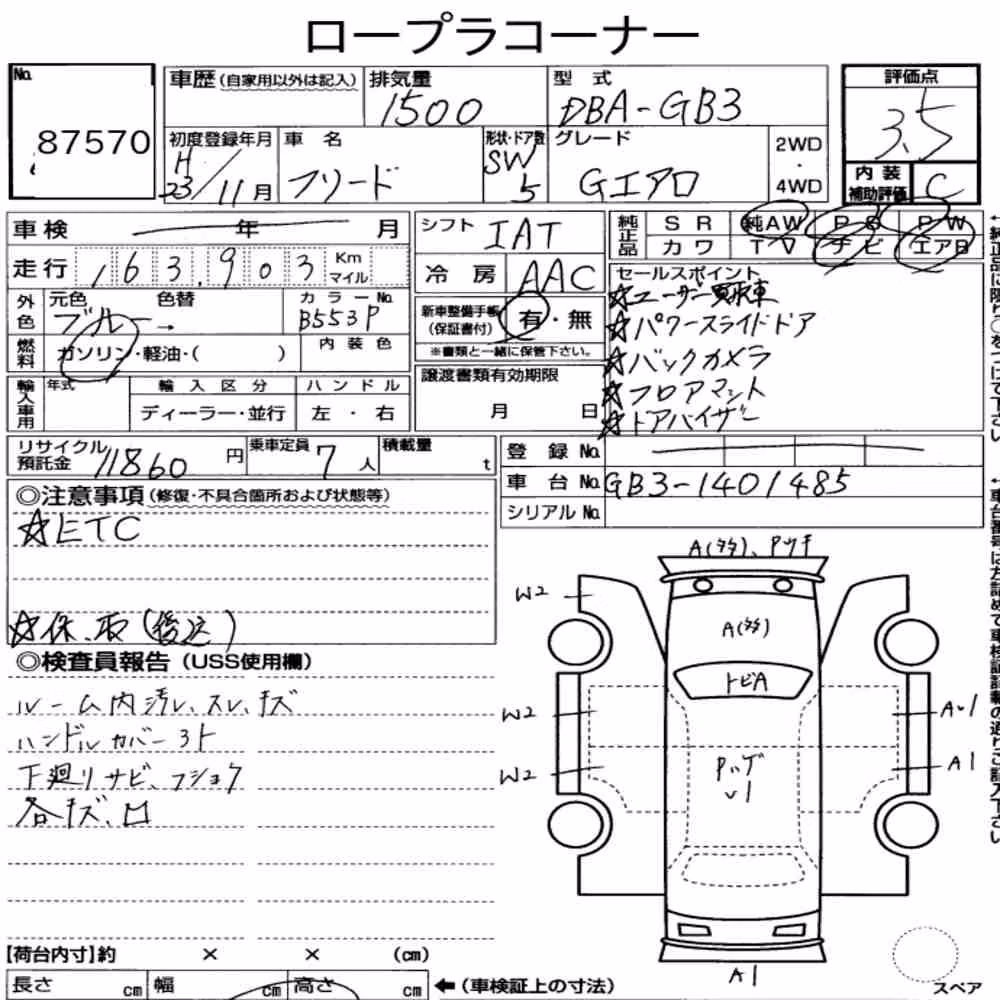 ロープラコーナー
No.
87570
車歴 (自家用以外は記入)
排気量
1500
型 式
DBA-GB3
評価点
3.5
初度登録年月
H
23/11月
車 名
フリード
形状・ドア数
SW
5
グレード
Gエアロ
2WD
・
4WD
内 装
補助評価
C
車検 年 月
走行 163,903 Km
マイル
外色
元色 色替
ブルー→
カラーNo.
B553P
燃料
ガソリン・軽油・( )
内 装 色
輸入車用
年式
輸 入 区 分
ディーラー・並行
ハ ン ド ル
左 ・ 右
シフト IAT
冷 房 AAC
新車整備手帳
(保証書付)
有・無
※書類と一緒に保管下さい。
譲渡書類有効期限
月 日
純正品
S R 純AW P S P W
カワ T V ナビ エアB
セールスポイント
☆ユーザー買取車
☆パワースライドドア
☆バックカメラ
☆フロアマット
☆ドアバイザー
リサイクル
預託金 11860 円
乗車定員 7 人
積載量 t
登 録 No.
車 台 No. GB3-1401485
シリアル No.
◎注意事項 (修復・不具合箇所および状態等)
☆ETC
☆保、取(後送)
◎検査員報告 (USS使用欄)
ルーム内汚レ、スレ、キズ
ハンドルカバー3ト
下廻りサビ、フショク
各キズ、凹
A(多々)、Pッチ
W2
A(多々)
トビA
W2
AU1
W2
A1
Pッゲ
U1
A1
スペア
【荷台内寸】約 × × (cm)
長さ cm 幅 cm 高さ cm
←(車検証上の寸法)